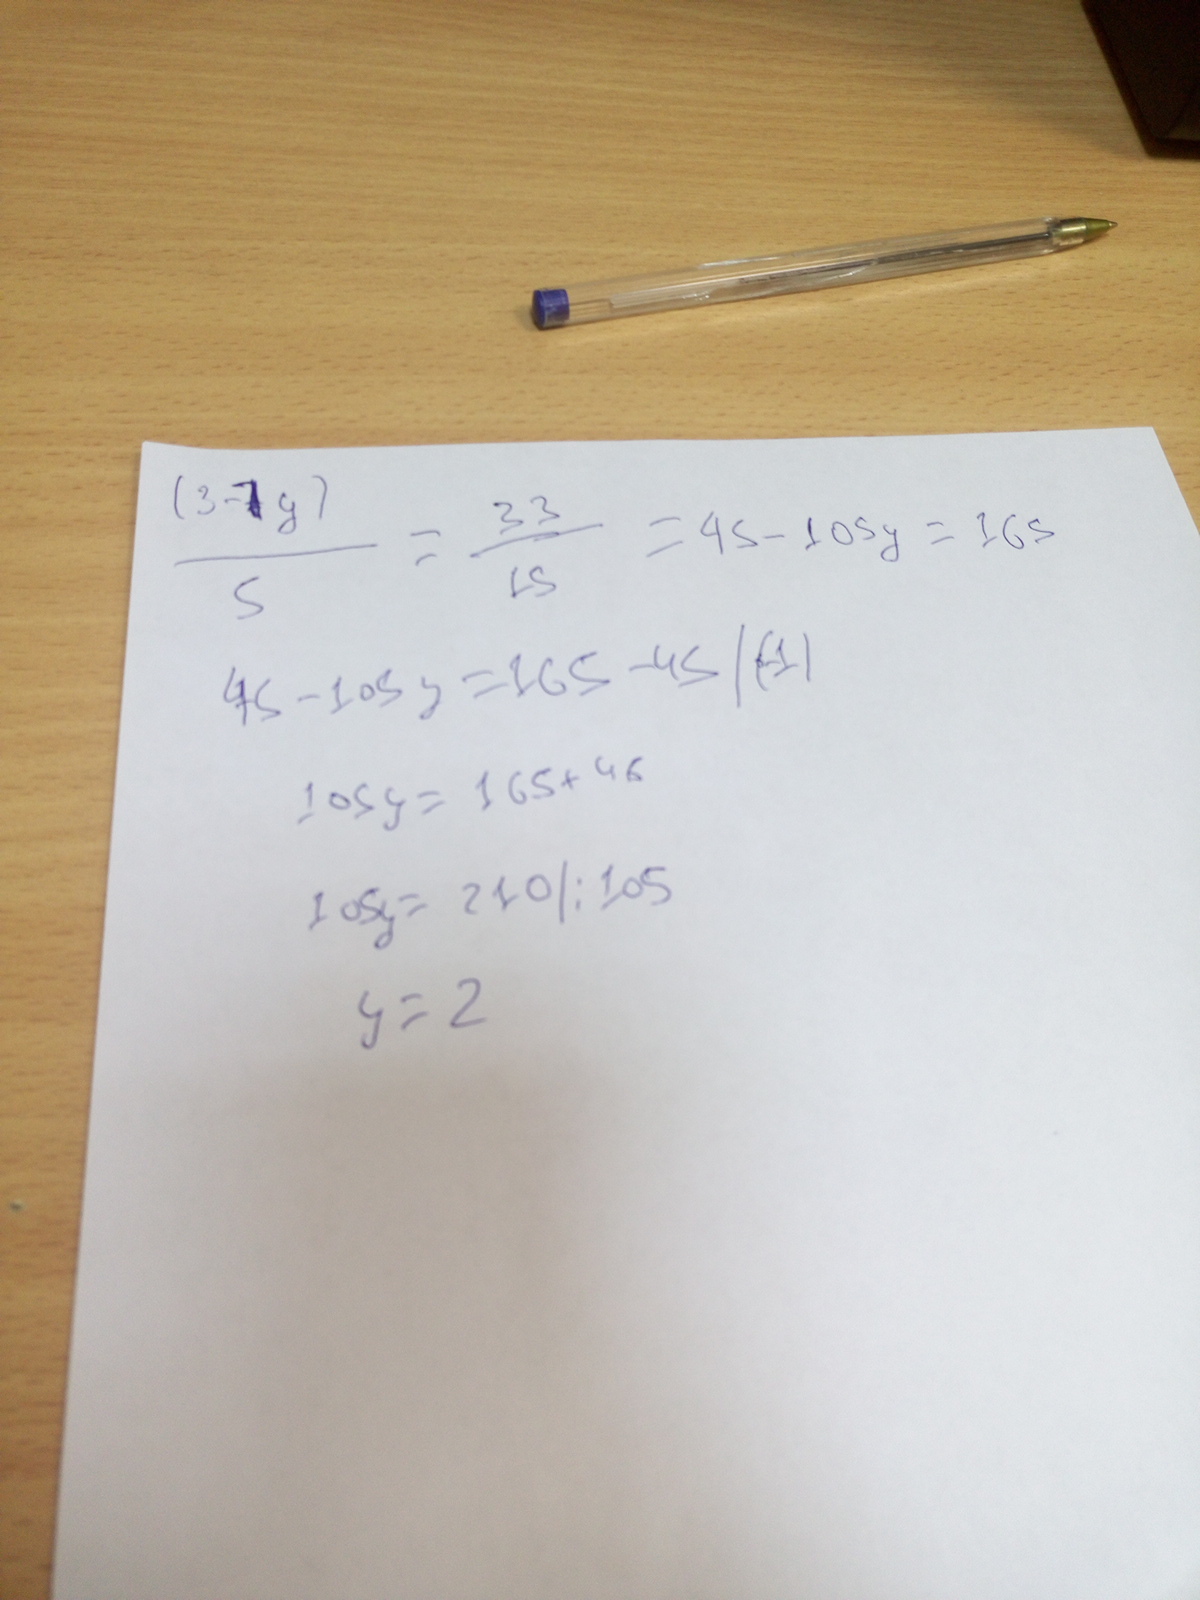 (3-7y)/5 = 33/15 = 45-105y = 165
45-105y = 165-45 |(-1)
105y = 165+46
105y = 210 |:105
y = 2